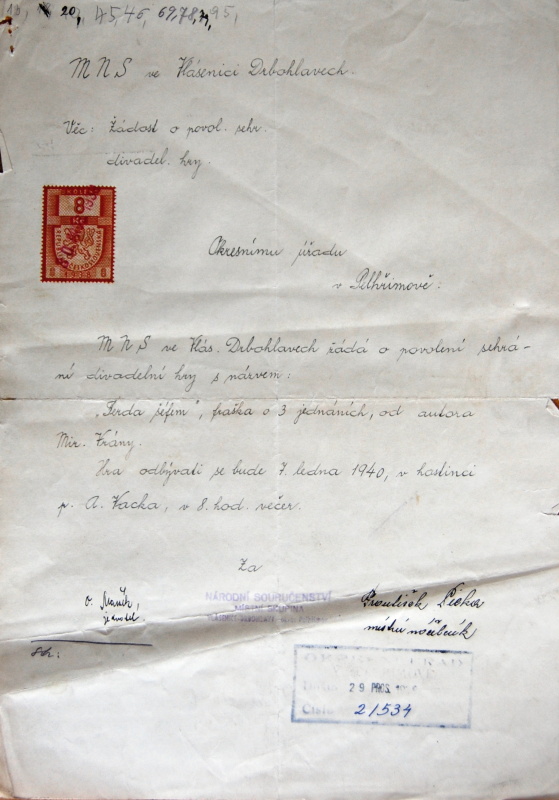 20, 45, 46, 69, 78, 95,
M N S ve Vlásenici Drbohlavech.
Věc: Žádost o povol. sehr.
divadel. hry.
8
8 1938 8
Okresnímu úřadu
v Pelhřimově:
M N S ve Vlás. Drbohlavech žádá o povolení sehrá-
ní divadelní hry s názvem:
„Ferda šéfem", fraška o 3 jednáních, od autora
Mir. Vrány.
Hra odbývati se bude 7. ledna 1940, v hostinci
p. A. Vacka, v 8. hod. večer.
Za
NÁRODNÍ SOURUČENSTVÍ
MÍSTNÍ SKUPINA
jednatel.
František
místní
29 PROS.
Číslo 21534